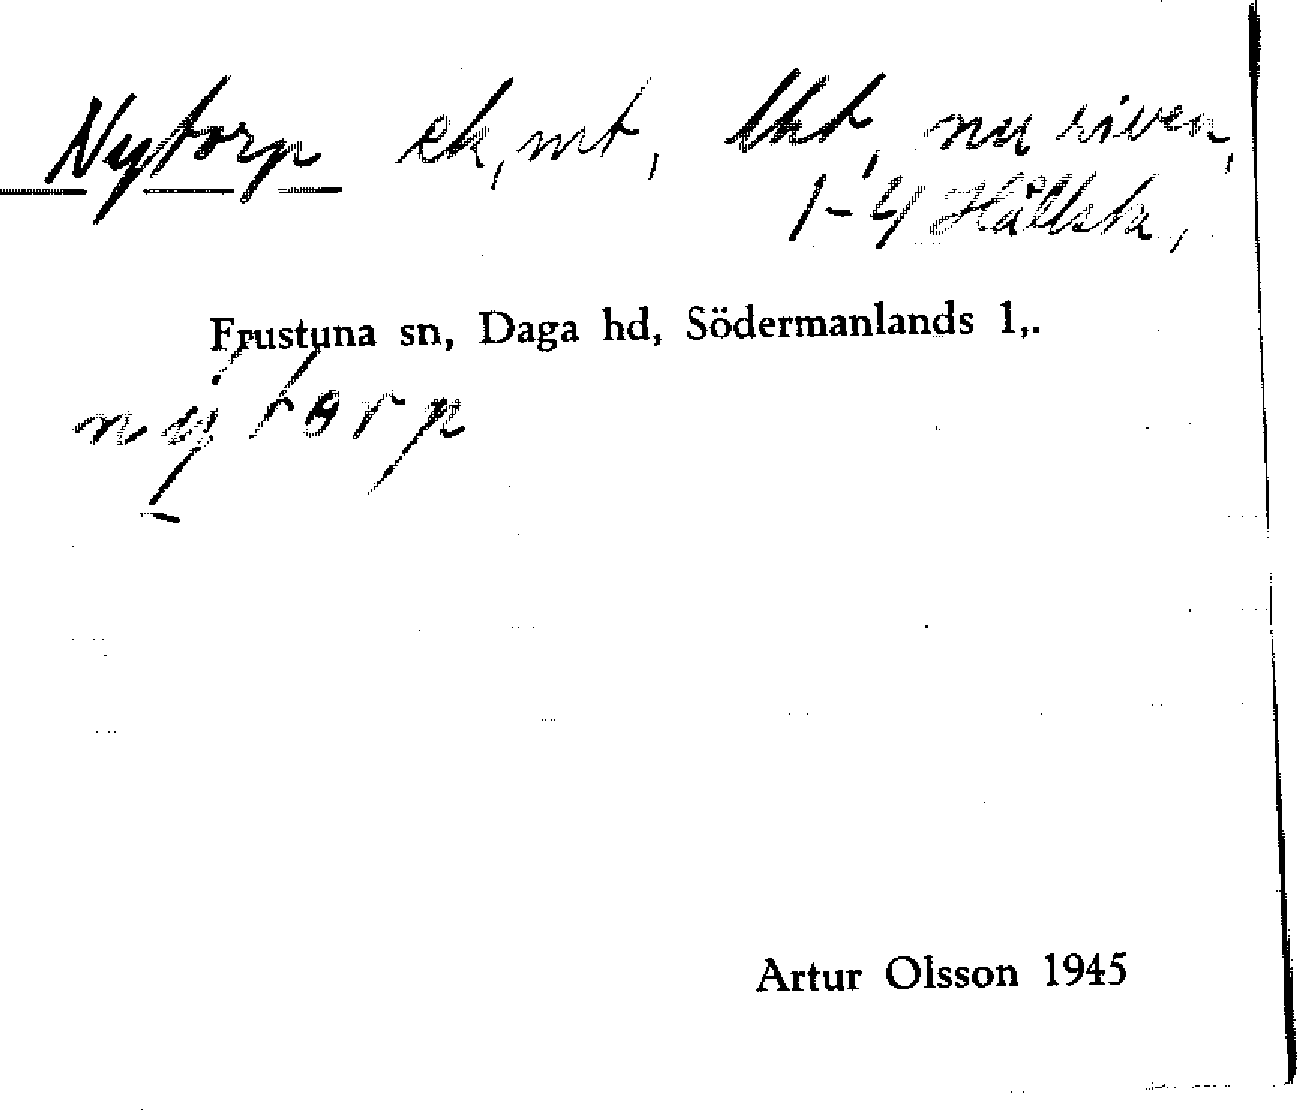 Nytorp ek, mt, lht, nu riven,
1-4 Hållsta,
Frustuna sn, Daga hd, Södermanlands l,.
nytorp
Artur Olsson 1945